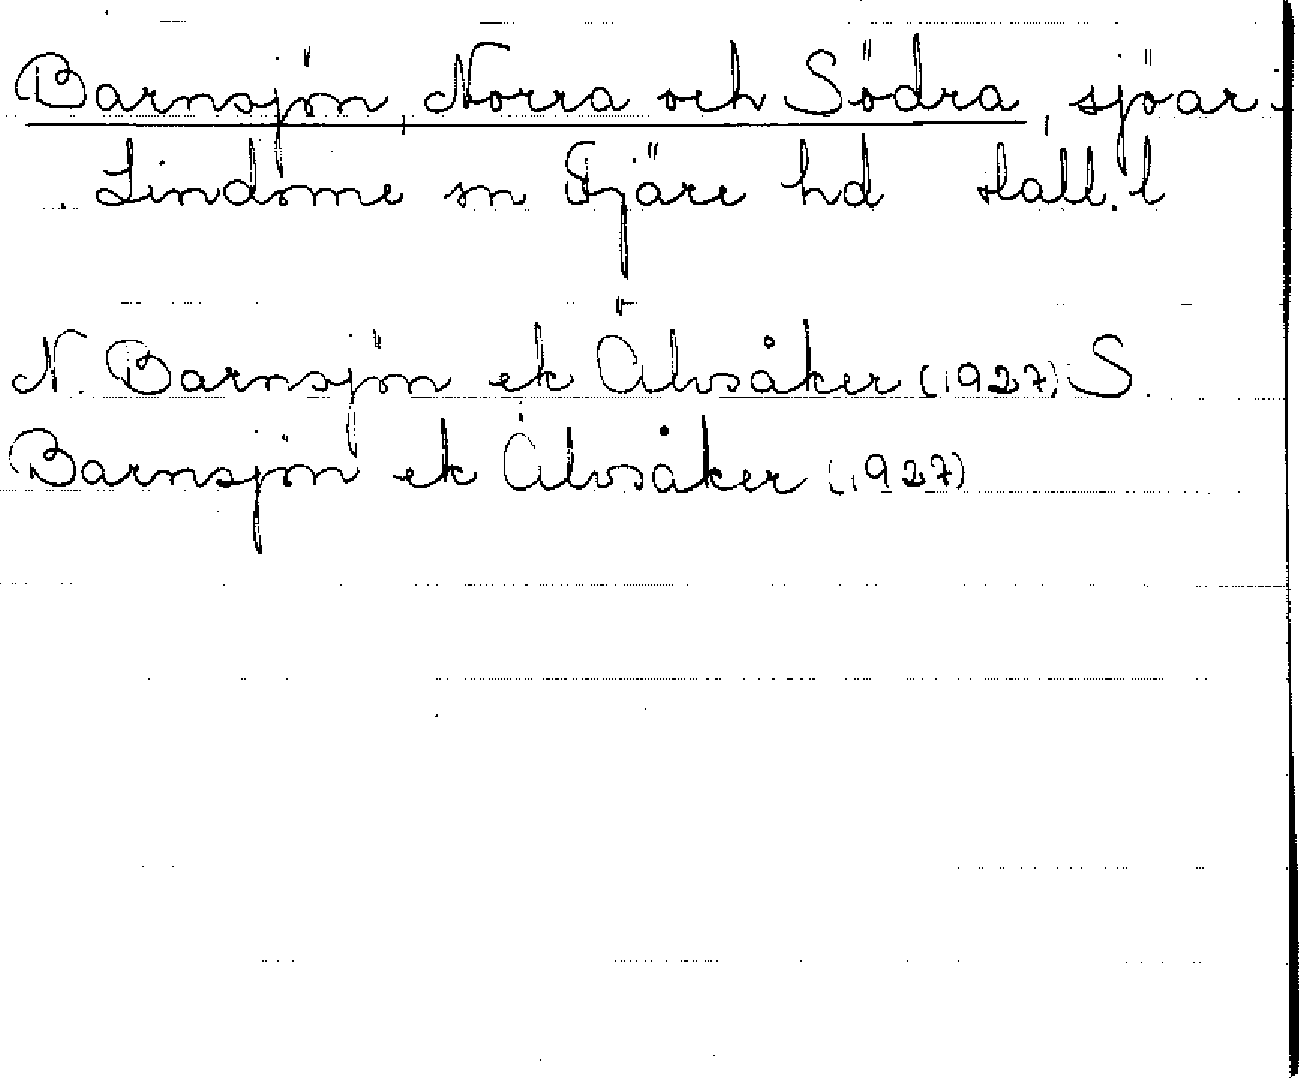 Barnsjön, Norra och Södra, sjöar i
Lindome sn Fjäre hd Hall. l
N. Barnsjön ek Älvsåker (1927) S
Barnsjön ek Älvsåker (1927)